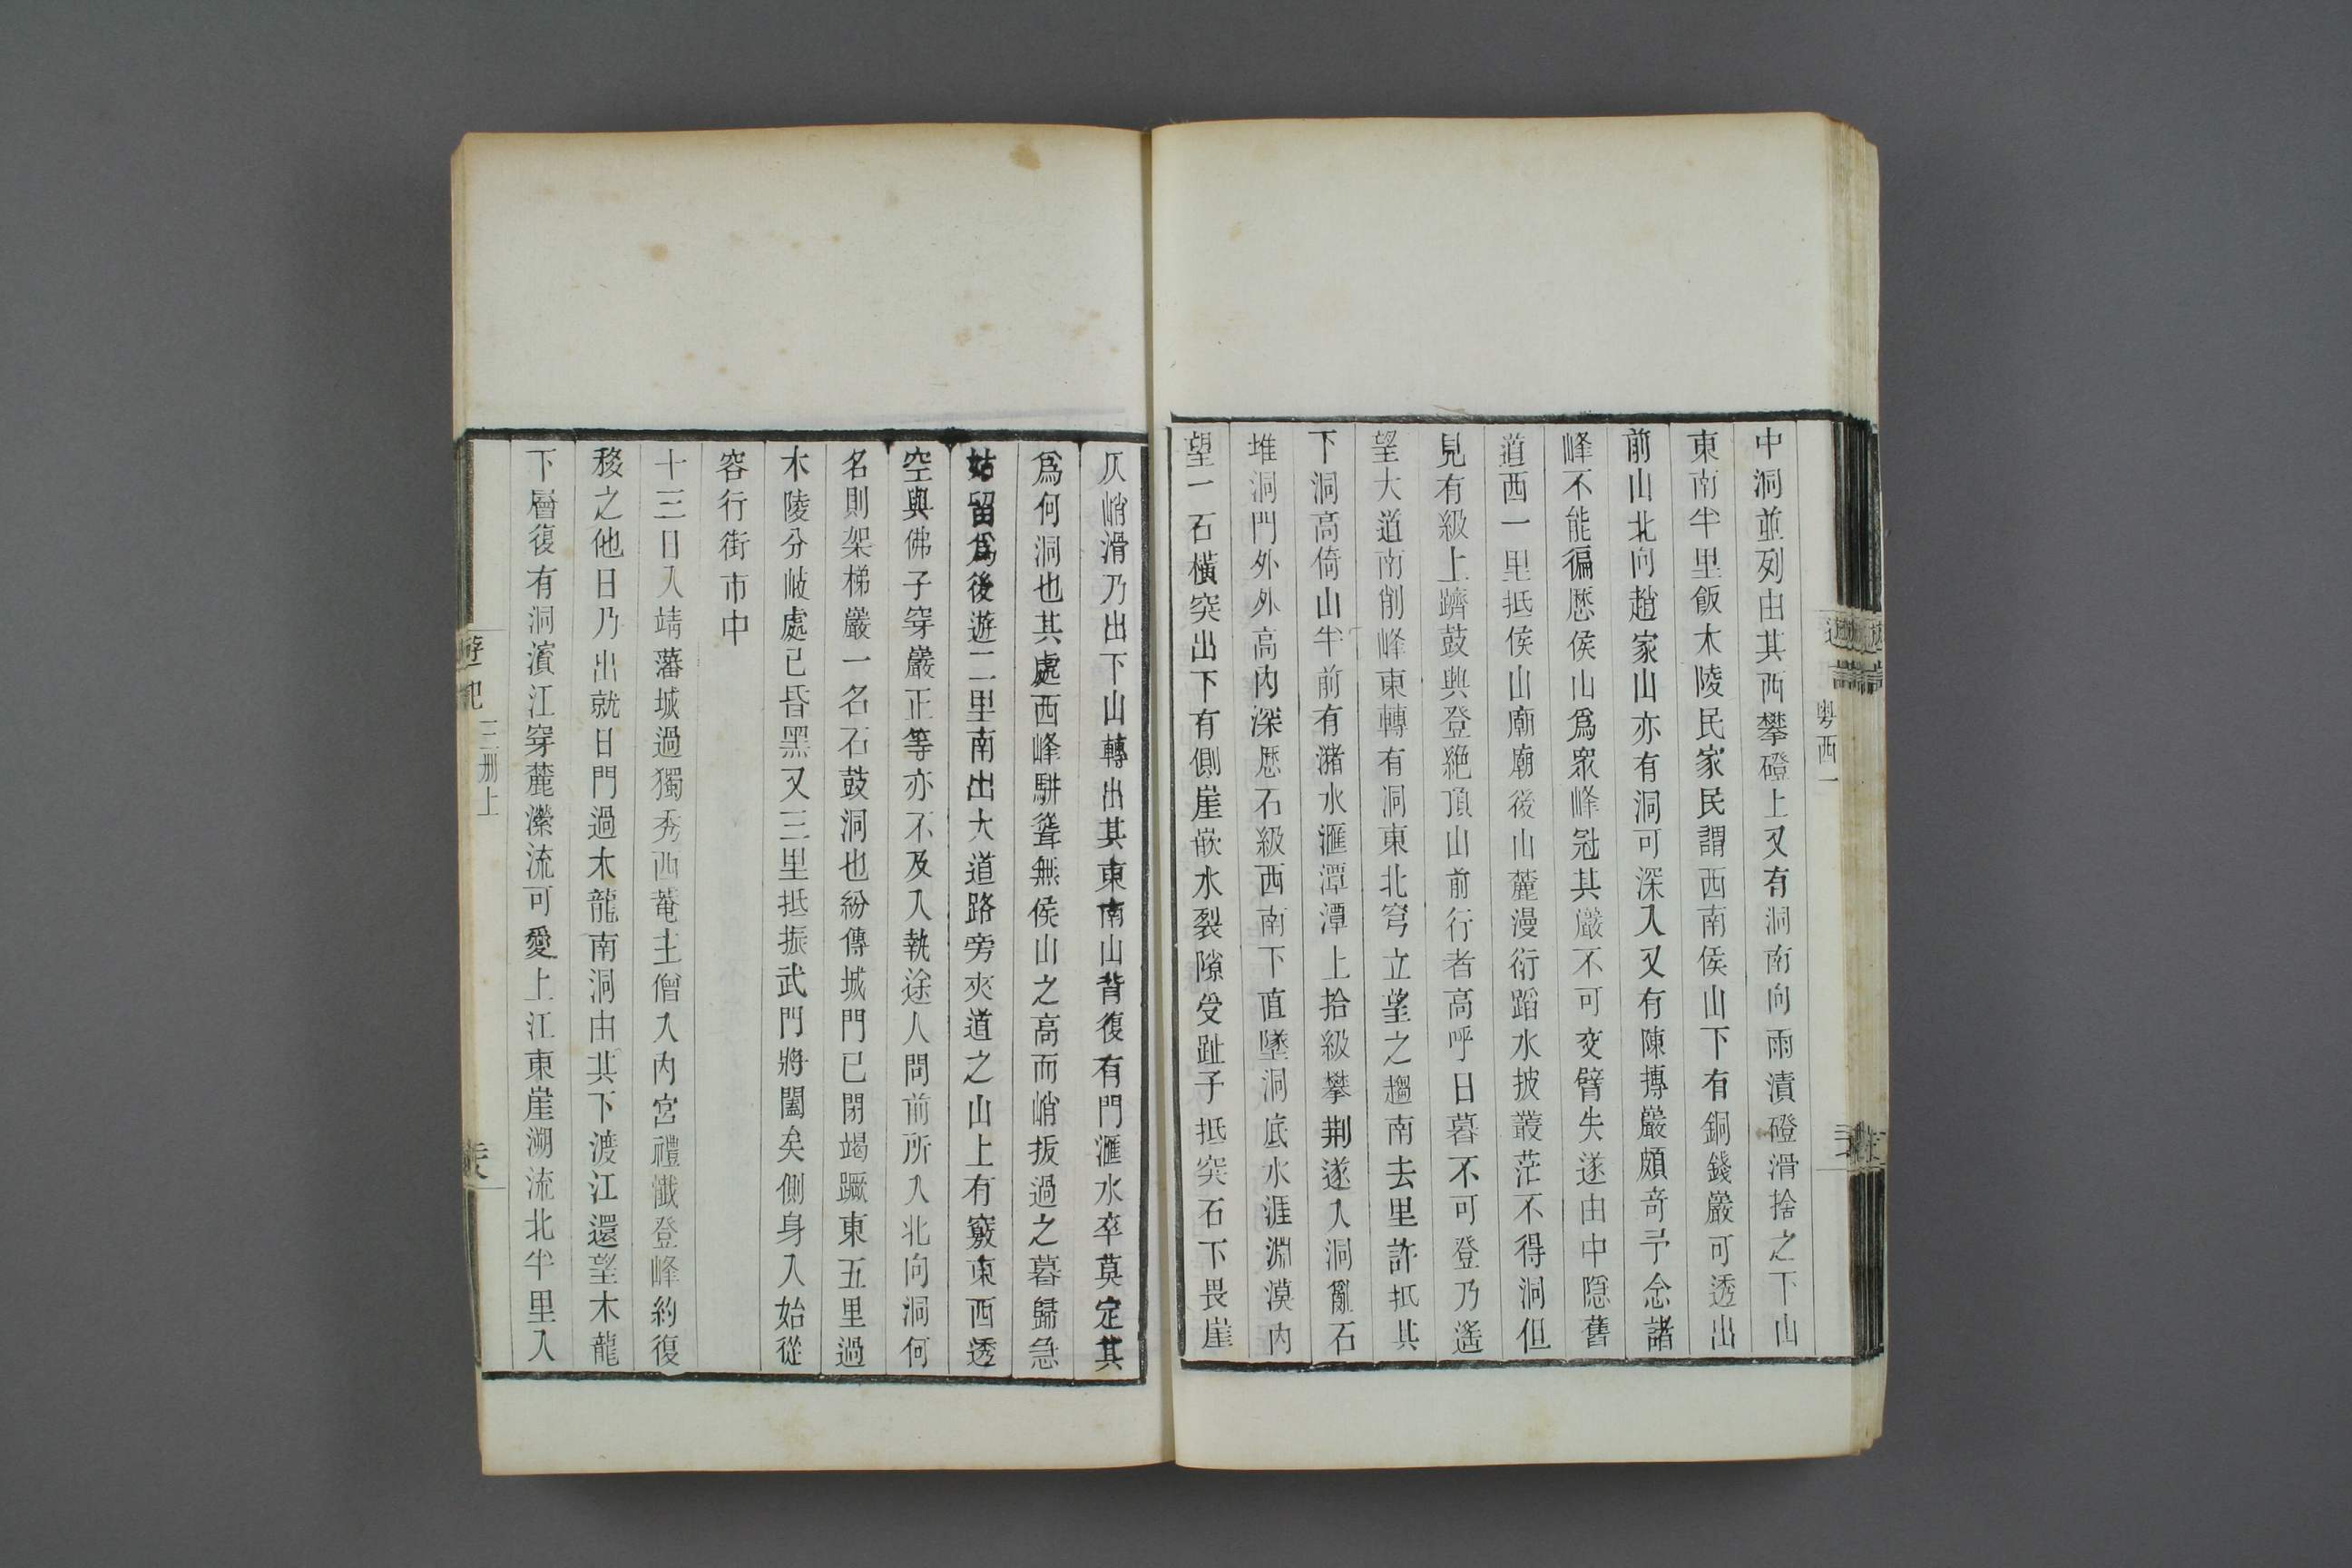 粵西一
中洞並列由其西攀磴上又有洞南向雨漬磴滑捨之下山
東南半里飯木陵民家民謂西南侯山下有銅錢巖可透出
前山北向趙家山亦有洞可深入又有陳摶巖頗奇予念諸
峰不能徧歷侯山爲眾峰冠其巖不可交臂失遂由中隱舊
道西一里抵侯山廟廟後山麓漫衍蹈水披叢茫不得洞但
見有級上躋鼓興登絶頂山前行者高呼日暮不可登乃遙
望大道南削峰東轉有洞東北穹立望之趨南去里許抵其
下洞高倚山半前有瀦水滙潭潭上拾級攀荆遂入洞亂石
堆洞門外外高內深歷石級西南下直墜洞底水涯淵漠內
望一石橫突出下有側崖嵌水裂隙受趾予抵突石下畏崖
仄峭滑乃出下山轉出其東南山背復有門滙水卒莫定其
爲何洞也其處西峰駢聳無侯山之高而峭拔過之暮歸急
姑留爲後遊二里南出大道路旁夾道之山上有竅東西透
空與佛子穿巖正等亦不及入執途人問前所入北向洞何
名則架梯巖一名石鼓洞也紛傳城門已閉竭蹶東五里過
木陵分岐處已昏黑又三里抵振武門將闔矣側身入始從
容行街市中
十三日入靖藩城過獨秀西菴主僧入內宮禮懺登峰約復
移之他日乃出就日門過木龍南洞由其下渡江還望木龍
下層復有洞濱江穿麓瀠流可愛上江東崖溯流北半里入
遊記
三册上